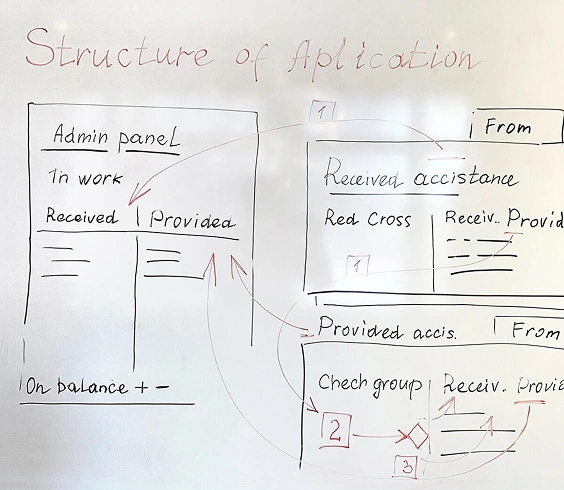 Structure of Aplication
Admin panel
In work
Received Provided
On balance + -
1
From
Received accistance
Red Cross Receiv.. Provid
1
Provided accis. From
Chech group Receiv. Provid
2
3